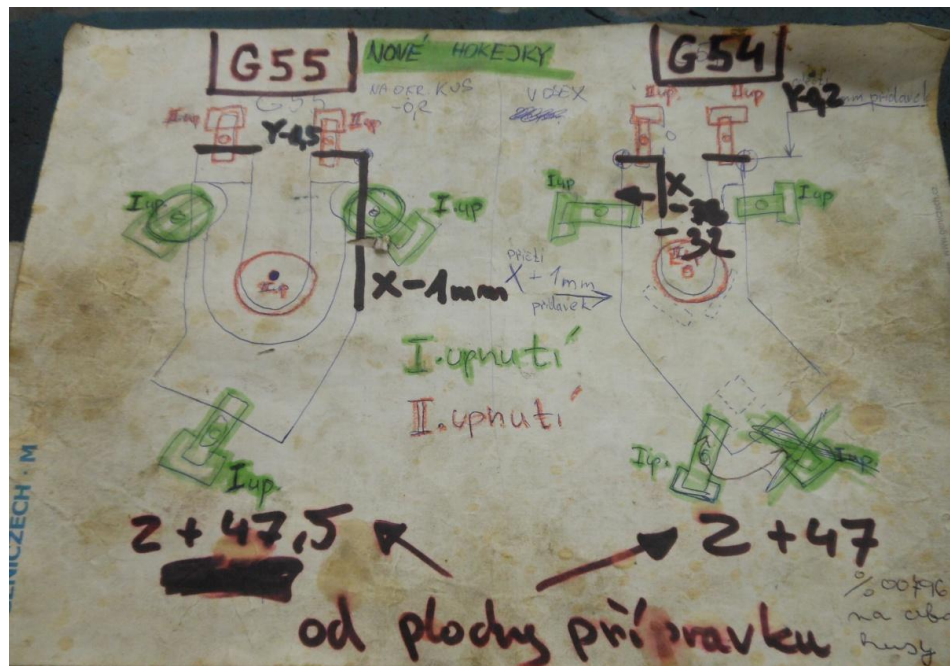 G55
NOVÉ HOKEJKY
G54
G55
NADER KUS
-0,2
V DEX
II up
II up
Y-1,5
II up
II up
Y-1,2
mm přídavek
I up
I.up
I up
I up
X
-32
II up
X-1mm
přičti
X+1mm
přídavek
II up
I. upnutí
II. upnutí
I up.
I up.
I up
Z+47,5
Z+47
od plochy přípravku
%00796
na oba
kusy
ENICZECH · M